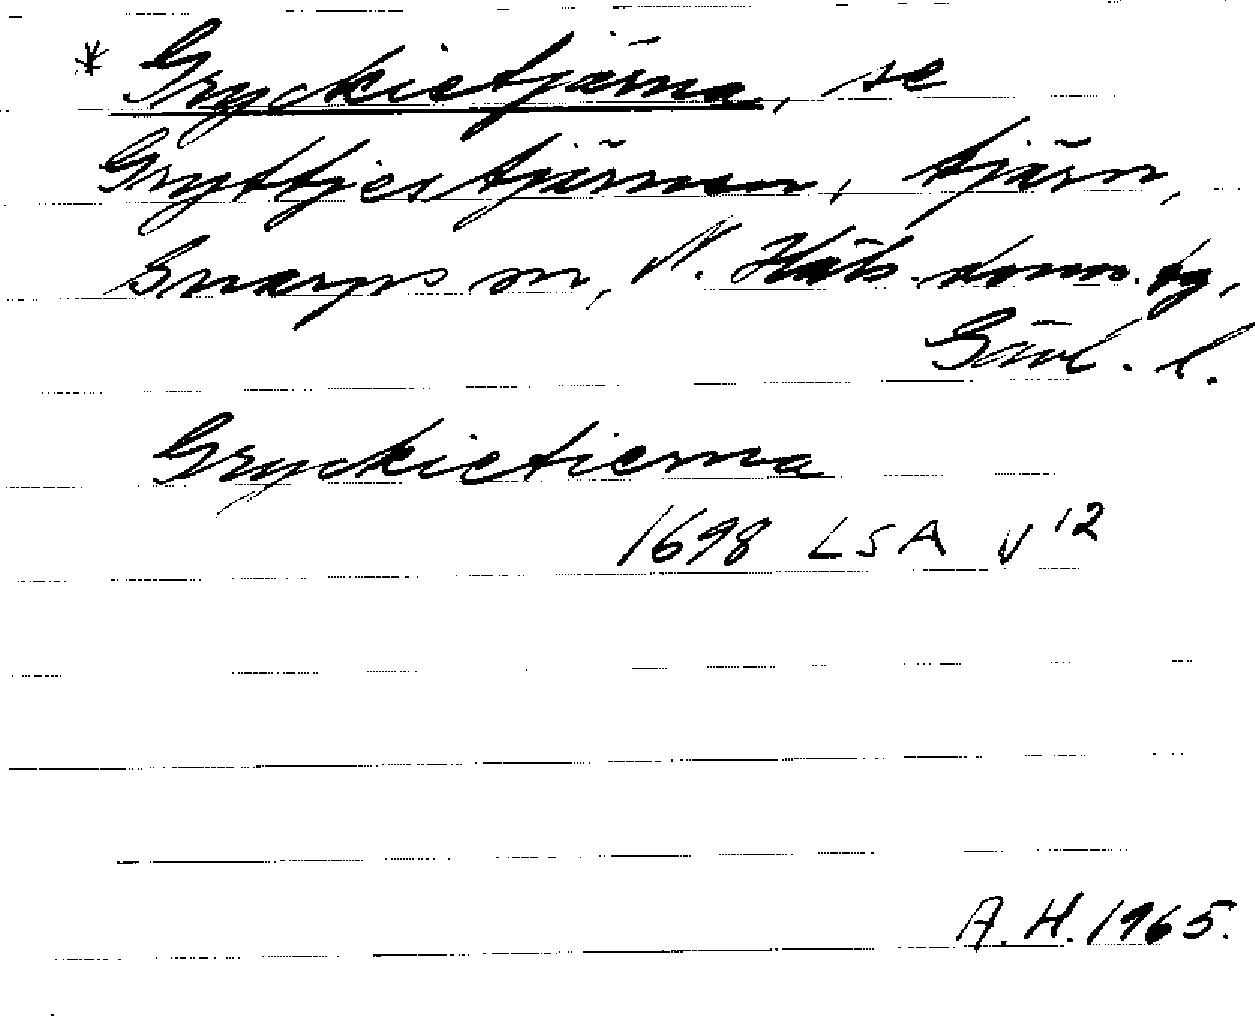 * Gryckietjärna, se
Gryttjestjärnen, tjärn,
Gnarps sn, N. Häls. dom. sg,
Gävl. l.
Gryckietierna
1698 LSA V 12
A.H. 1965.